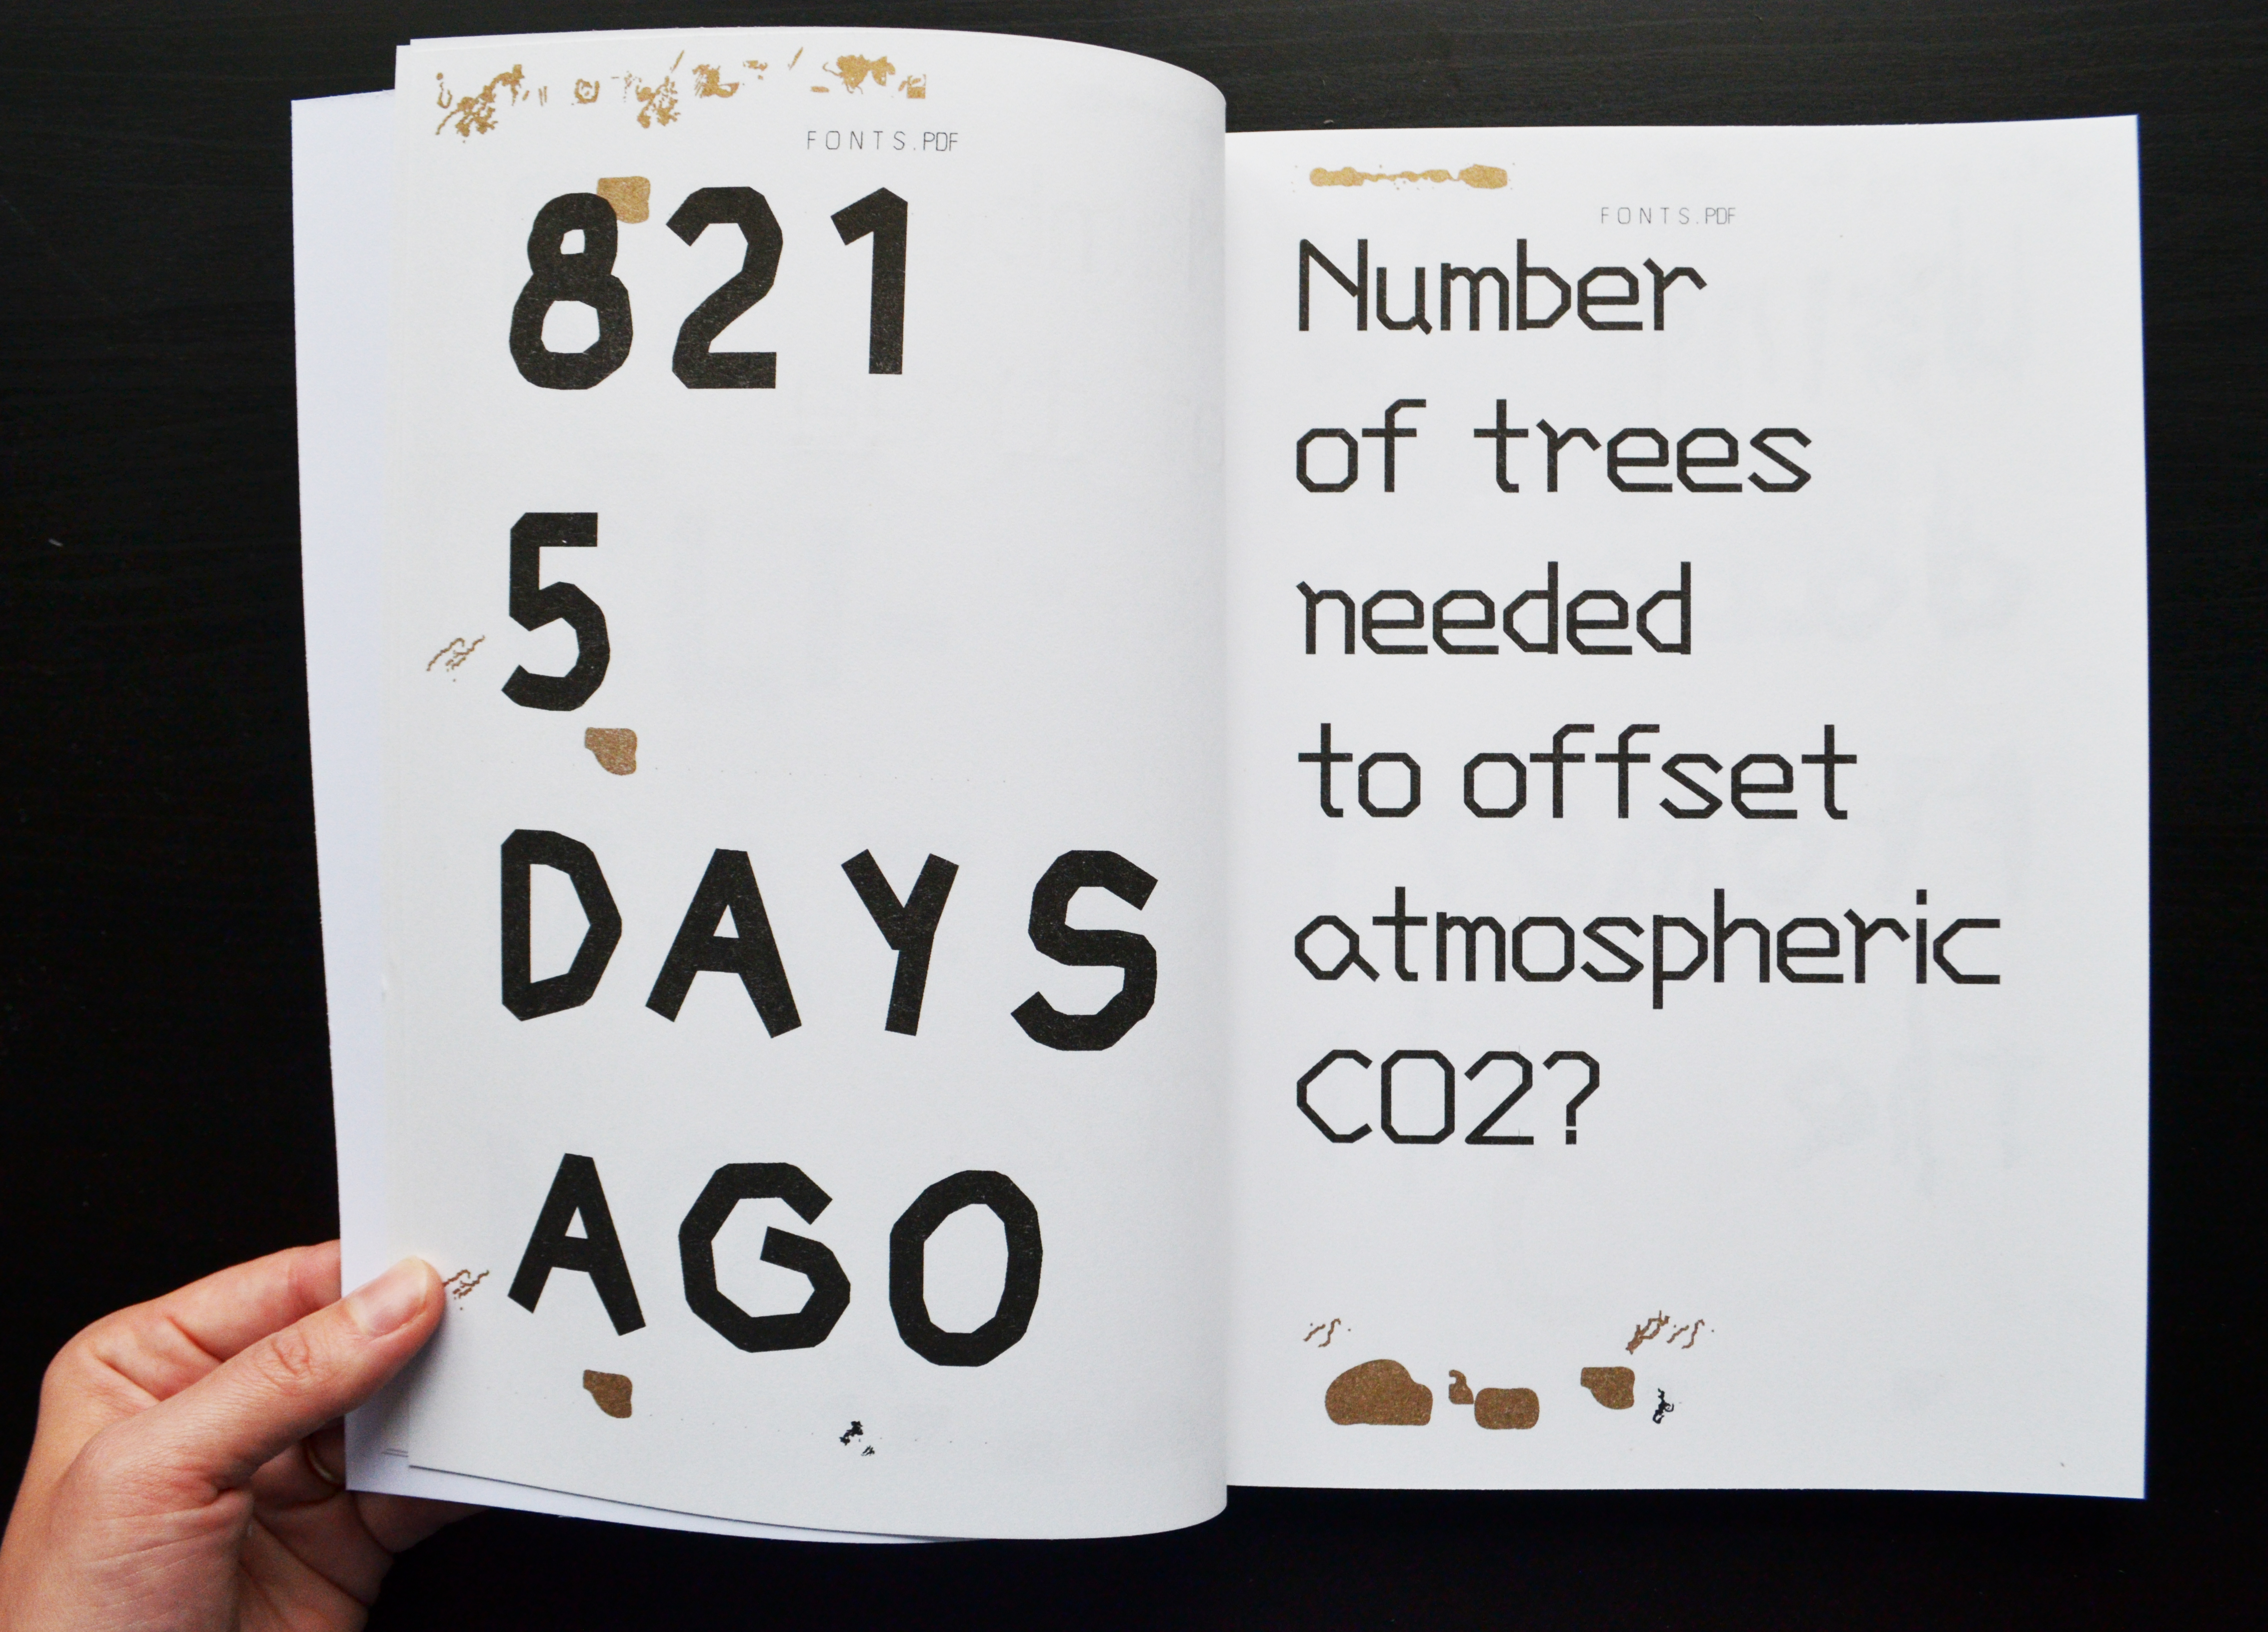 FONTS.PDF
821
5
DAYS
AGO
FONTS.PDF
Number
of trees
needed
to offset
atmospheric
CO2?